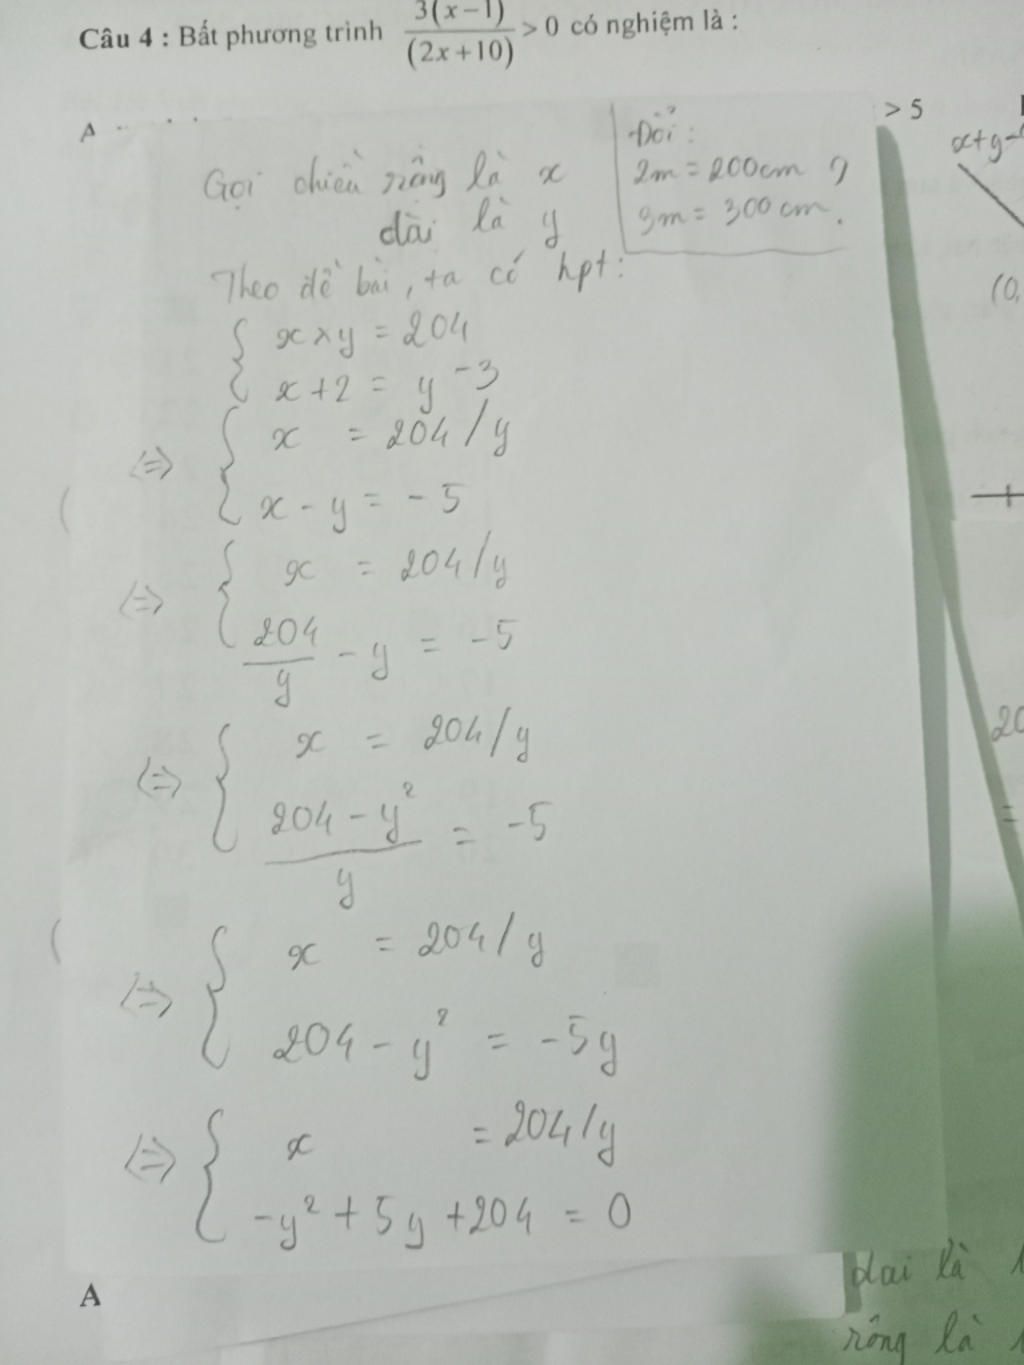 Câu 4 : Bất phương trình 3(x−1)/(2x+10) > 0 có nghiệm là :
A
> 5
x+y-
Gọi chiều rộng là x
dài là y
Đổi :
2m = 200cm ?
3m = 300 cm.
Theo đề bài, ta có hpt:
{ x × y = 204
x + 2 = y - 3
<=> { x = 204/y
x - y = - 5
<=> { x = 204/y
204/y - y = -5
<=> { x = 204/y
(204 - y²)/y = -5
<=> { x = 204/y
204 - y² = -5y
<=> { x = 204/y
-y² + 5y + 204 = 0
(0,
20
=
A
dai là 1
rộng là 1